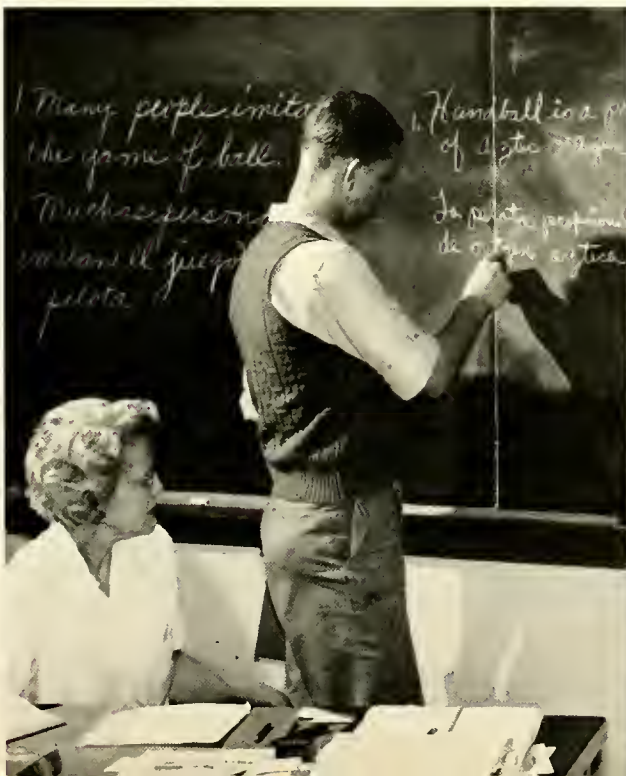 1 Many people imita
the game of ball.
Muchas person
imitan el juego
pelota
1. Handball is a p
of aztec
La pelota
de azteca